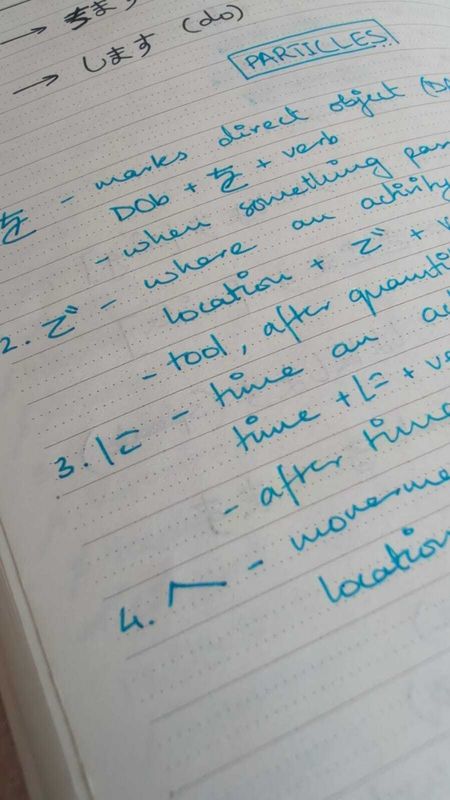 → きます
→ します (do)
PARTICLES
を - marks direct object
DOb + を + verb
- when something
2. で - where an activity
location + で +
- tool, after
3. に - time an
time + に +
- after time
4. へ -
location